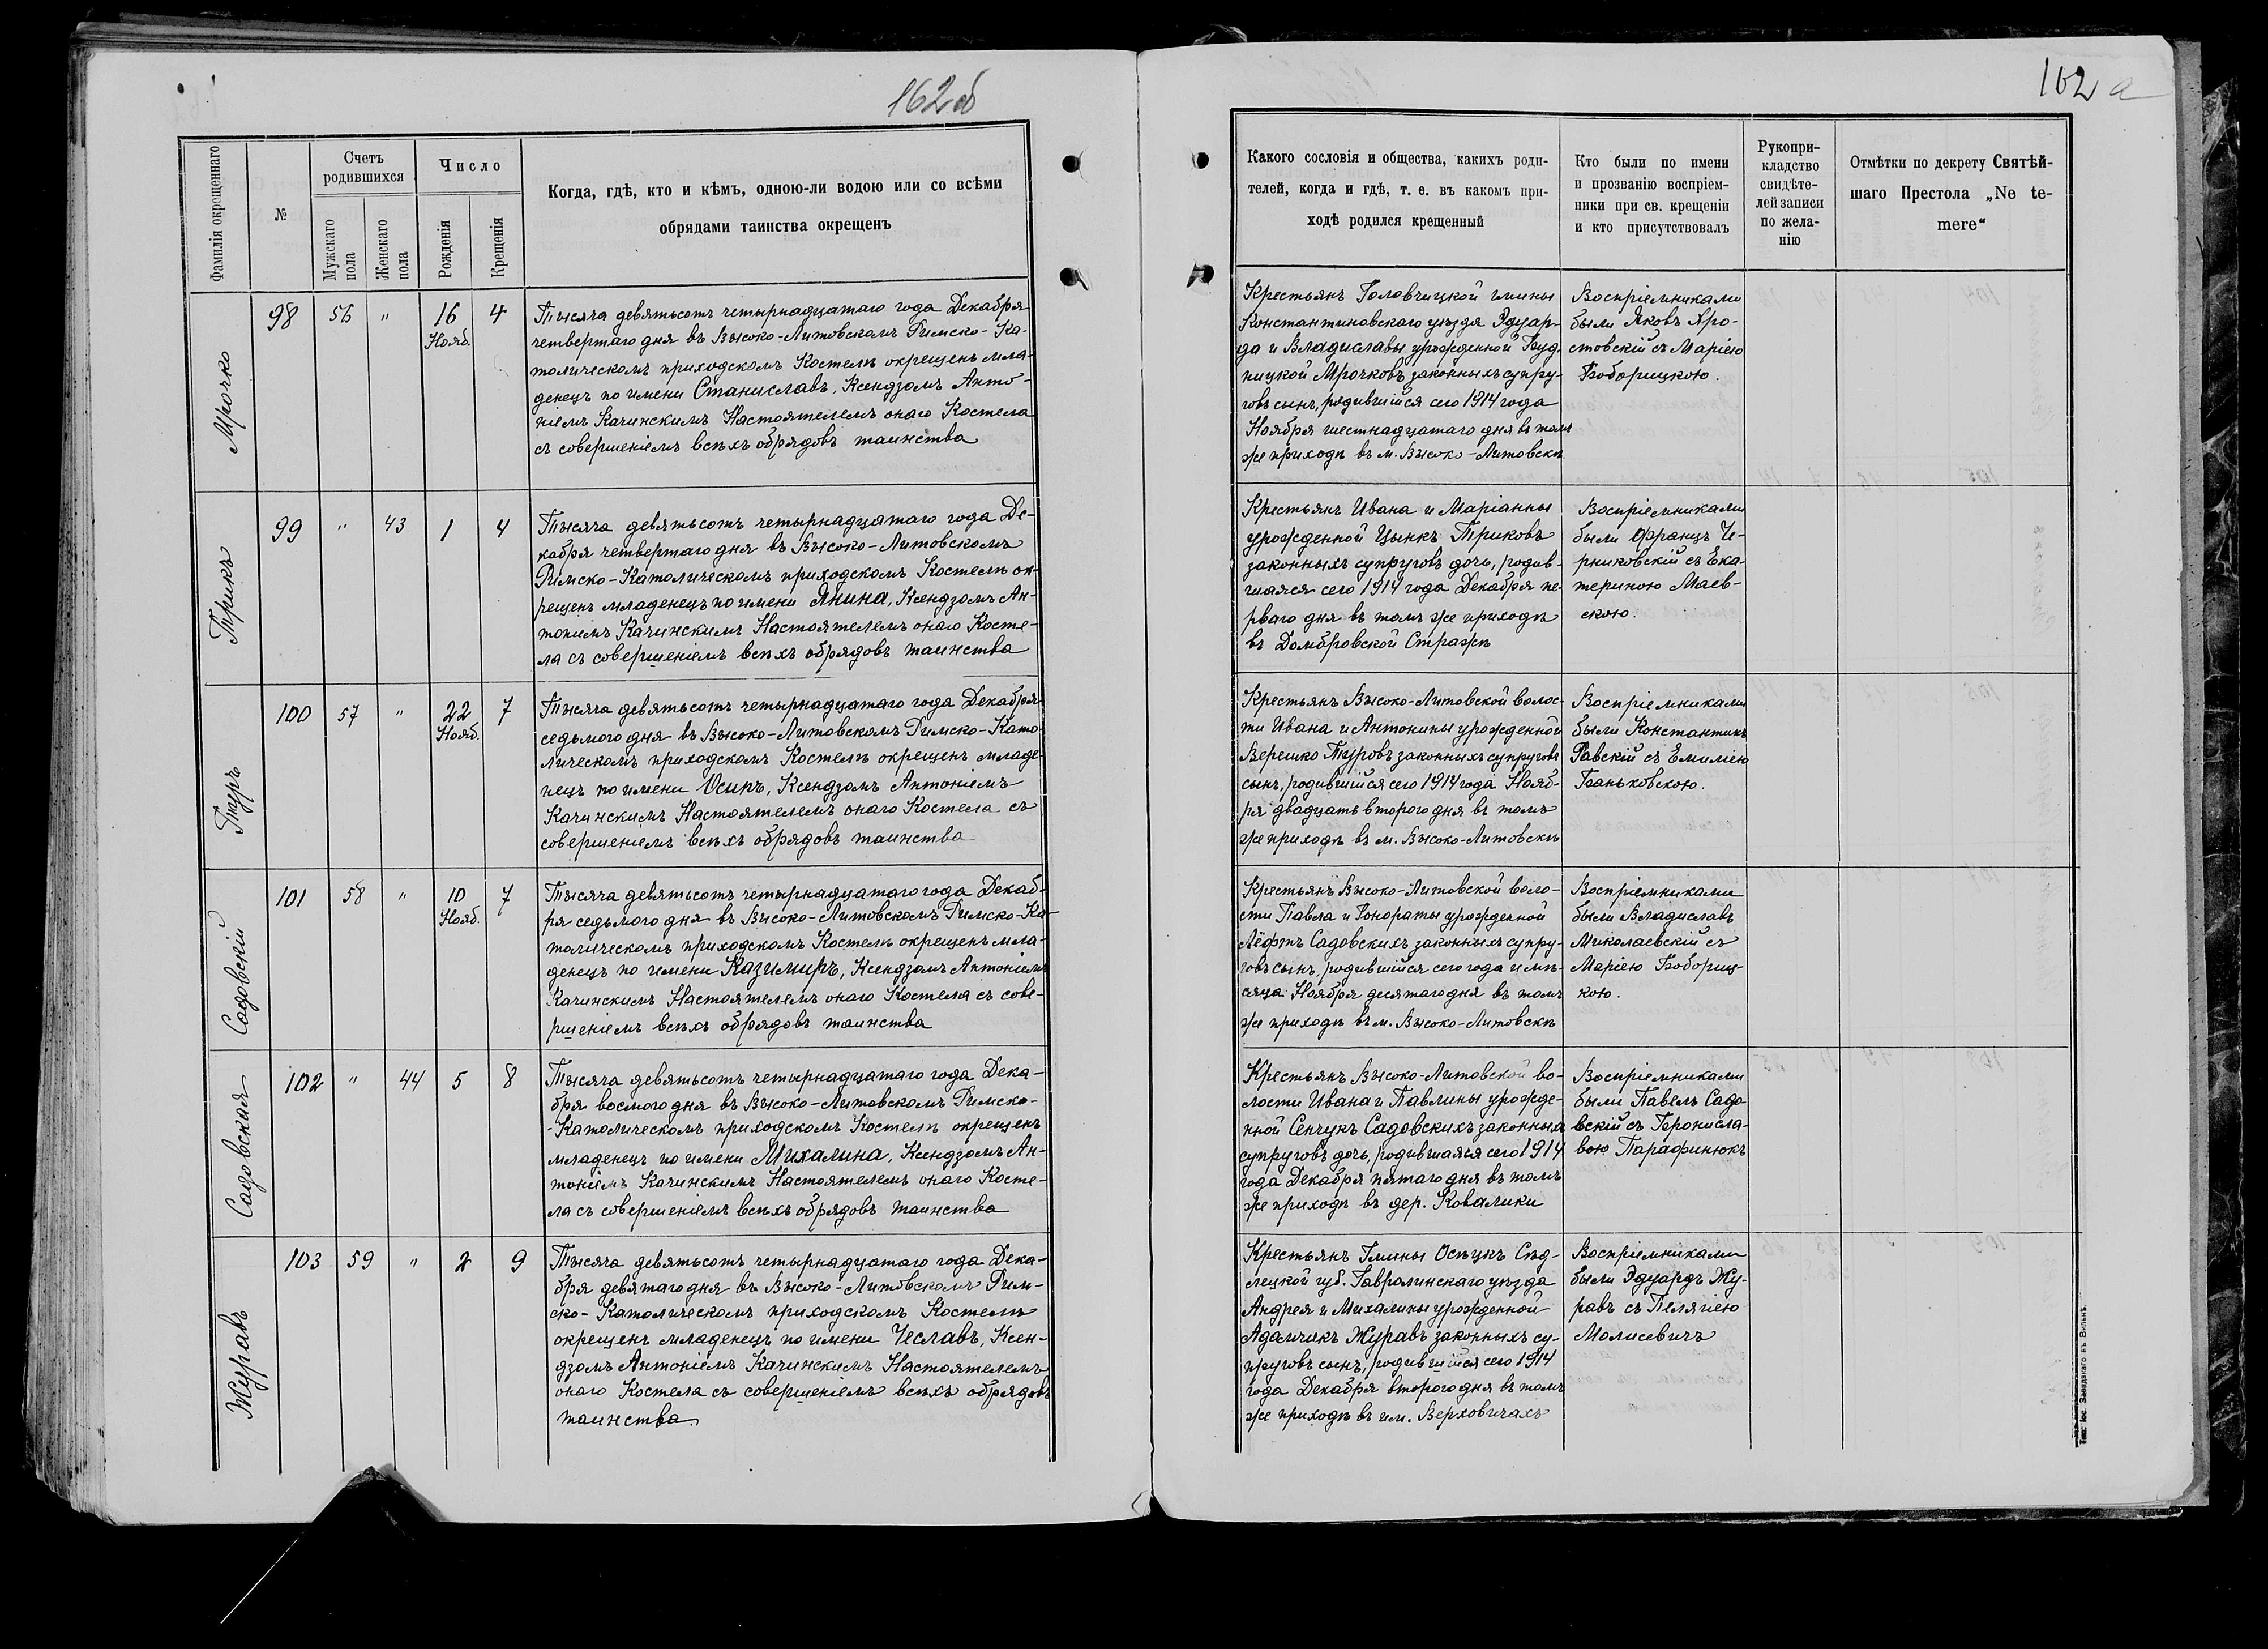 162 об
Фамилія окрещеннаго
№
Счетъ
родившихся
Мужскаго
пола
Женскаго
пола
Число
Рожденія
Крещенія
Когда, гдѣ, кто и кѣмъ, одною-ли водою или со всѣми
обрядами таинства окрещенъ
Мрочко
98
56
"
16
Нояб.
4
Тысяча девятьсотъ четырнадцатаго года Декабря
четвертаго дня въ Высоко-Литовскомъ Римско-Ка-
толическомъ приходскомъ Костелѣ окрещенъ мла-
денецъ по имени Станиславъ, Ксендзомъ Анто-
ніемъ Качинскимъ Настоятелемъ онаго Костела
съ совершеніемъ всѣхъ обрядовъ таинства
Трикъ
99
"
43
1
4
Тысяча девятьсотъ четырнадцатаго года Де-
кабря четвертаго дня въ Высоко-Литовскомъ
Римско-Католическомъ приходскомъ Костелѣ ок-
рещенъ младенецъ по имени Янина, Ксендзомъ Ан-
тонимъ Качинскимъ Настоятелемъ онаго Косте-
ла съ совершеніемъ всѣхъ обрядовъ таинства
Туръ
100
57
"
22
Нояб.
7
Тысяча девятьсотъ четырнадцатаго года Декабря
седьмого дня въ Высоко-Литовскомъ Римско-Като-
лическомъ приходскомъ Костелѣ окрещенъ младе-
нецъ по имени Осипъ, Ксендзомъ Антоніемъ
Качинскимъ Настоятелемъ онаго Костела съ
совершеніемъ всѣхъ обрядовъ таинства
Садовскій
101
58
"
10
Нояб.
7
Тысяча девятьсотъ четырнадцатаго года Декаб-
ря седьмого дня въ Высоко-Литовскомъ Римско-Ка-
толическомъ приходскомъ Костелѣ окрещенъ мла-
денецъ по имени Казимиръ, Ксендзомъ Антоніемъ
Качинскимъ Настоятелемъ онаго Костела съ сове-
ршеніемъ всѣхъ обрядовъ таинства
Садовская
102
"
44
5
8
Тысяча девятьсотъ четырнадцатаго года Дека-
бря восмого дня въ Высоко-Литовскомъ Римско-
-Католическомъ приходскомъ Костелѣ окрещенъ
младенецъ по имени Михалина, Ксендзомъ Ан-
тоніемъ Качинскимъ Настоятелемъ онаго Косте-
ла съ совершеніемъ всѣхъ обрядовъ таинства
Журавъ
103
59
"
2
9
Тысяча девятьсотъ четырнадцатаго года Дека-
бря девятаго дня въ Высоко-Литовскомъ Рим-
ско-Католическомъ приходскомъ Костелѣ
окрещенъ младенецъ по имени Чеславъ, Ксен-
дзомъ Антоніемъ Качинскимъ Настоятелемъ
онаго Костела съ совершеніемъ всѣхъ обрядовъ
таинства
162 а
Какого сословія и общества, какихъ роди-
телей, когда и гдѣ, т. е. въ какомъ при-
ходѣ родился крещенный
Кто были по имени
и прозванію воспріем-
ники при св. крещеніи
и кто присутствовалъ
Рукопри-
кладство
свидѣте-
лей записи
по жела-
нію
Отмѣтки по декрету Святѣй-
шаго Престола „Ne te-
mere“
Крестьянъ Головчицкой гмины
Константиновскаго уѣзда Эдуар-
да и Владиславы урожденной Буд-
ницкой Мрочковъ законныхъ супру-
говъ сынъ, родившійся сего 1914 года
Ноября шестнадцатаго дня въ томъ
же приходѣ въ м. Высоко-Литовскѣ
Воспріемниками
были Яковъ Яро-
стовскій съ Маріею
Боборицкою.
Крестьянъ Ивана и Маріанны
урожденной Цынкъ Триковъ
законныхъ супруговъ дочь, родив-
шаяся сего 1914 года Декабря пе-
рваго дня въ томъ же приходѣ
въ Домбровской Стражѣ
Воспріемниками
были Францъ Че-
рниковскій съ Ека-
териною Маев-
скою.
Крестьянъ Высоко-Литовской волос-
ти Ивана и Антонины урожденной
Верешко Туровъ законныхъ супруговъ
сынъ, родившійся сего 1914 года Нояб-
ря двадцать второго дня въ томъ
же приходѣ въ м. Высоко-Литовскѣ
Воспріемниками
были Константинъ
Равскій съ Емиліею
Баньковскою.
Крестьянъ Высоко-Литовской воло-
сти Павла и Гонораты урожденной
Лёфтъ Садовскихъ законныхъ супру-
говъ сынъ, родившійся сего года и мѣ-
сяца Ноября десятаго дня въ томъ
же приходѣ въ м. Высоко-Литовскѣ
Воспріемниками
были Владиславъ
Миколаевскій съ
Маріею Бобориц-
кою.
Крестьянъ Высоко-Литовской во-
лости Ивана и Павлины урожде-
нной Сенчукъ Садовскихъ законныхъ
супруговъ дочь, родившаяся сего 1914
года Декабря пятаго дня въ томъ
же приходѣ въ дер. Ковалики
Воспріемниками
были Павелъ Садо-
вскій съ Бронисла-
вою Парафинюкъ
Крестьянъ Гмины Осѣцкъ Сѣд-
лецкой губ. Гавролинскаго уѣзда
Андрея и Михалины урожденной
Адамчикъ Журавъ законныхъ су-
пруговъ сынъ, родившійся сего 1914
года Декабря второго дня въ томъ
же приходѣ въ им. Верховичахъ
Воспріемниками
были Эдуардъ Жу-
равъ съ Пелягіею
Молисевичъ
Тип. Іос. Завадзкаго въ Вильнѣ.